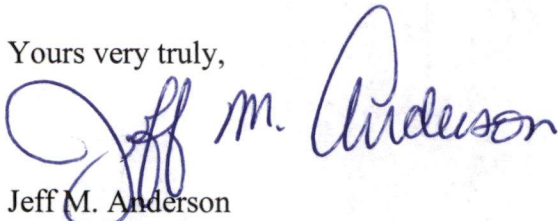 Yours very truly,
Jeff M. Anderson
Jeff M. Anderson